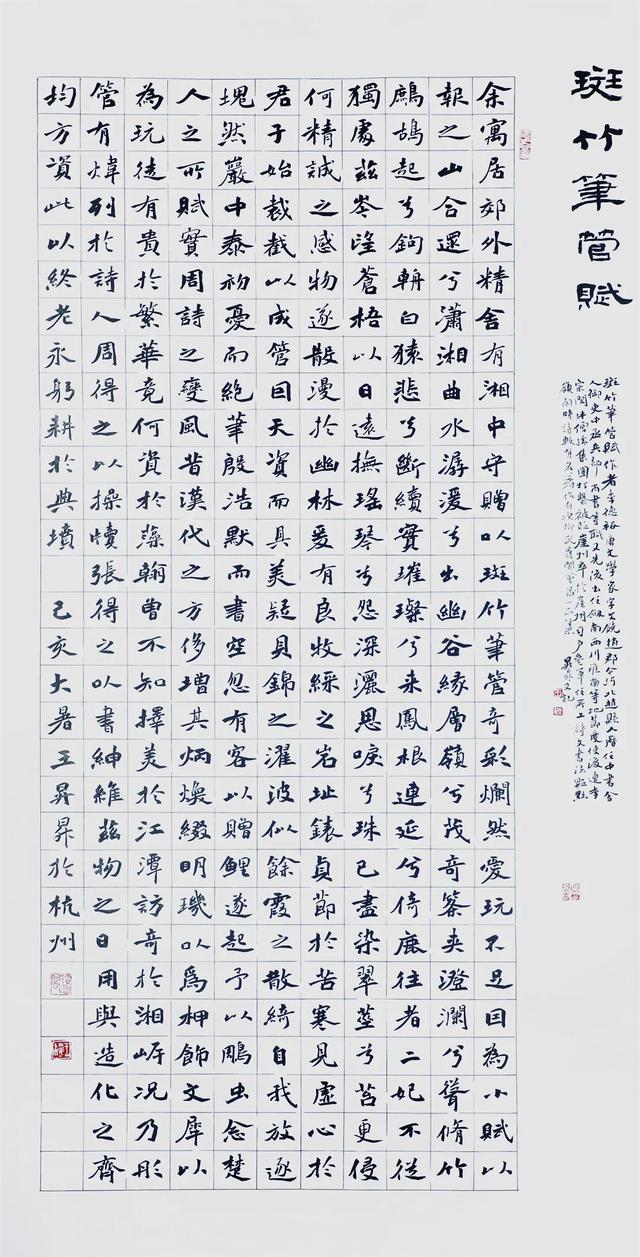 斑竹筆管賦
斑竹筆管賦作者李德裕唐文學家字文饒趙郡今河北趙縣人歷任中書舍
人御史中丞兵部尚書等職又先後出任劍南西川淮南等地節度使後連李
宗閔牛僧孺集團打擊被貶崖州卒於崖州司戶參軍任所工詩文書法
嶺南時詩
余寓居郊外精舍有湘中守贈以斑竹筆管奇彩爛然愛玩不足因為小賦以
報之山合遝兮瀟湘曲水潺湲兮出幽谷緣層嶺兮茂奇篠夾澄瀾兮聳脩竹
鷓鴣起兮鉤輈白猿悲兮斷續實璀璨兮來鳳根連延兮倚鹿往者二妃不從
獨處茲岑望蒼梧以日遠撫瑤琴兮怨深灑思淚兮珠已盡染翠莖兮苔更侵
何精誠之感物遂散漫於幽林爰有良牧綵之岩址錶貞節於苦寒見虛心於
君子始裁截以成管因天資而具美疑貝錦之濯波似餘霞之散綺自我放逐
塊然巖中泰初憂而絕筆殷浩默而書空忽有客以贈鯉遂起予以鵰虫念楚
人之所賦實周詩之變風昔漢代之方侈增其炳煥綴明璣以為柙飾文犀以
為玩徒有貴於繁華竟何資於藻翰曾不知擇美於江潭訪奇於湘岸況乃彤
管有煒列於詩人周得之以操牘張得之以書紳維茲物之日用與造化之齊
均方資此以終老永躬耕於典墳 己亥大暑王昇昇於杭州